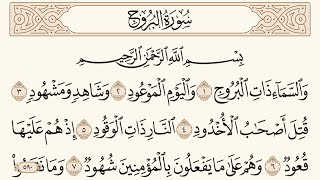 سُورَةُ الْبُرُوجِ
بِسْمِ اللَّهِ الرَّحْمَٰنِ الرَّحِيمِ
وَالسَّمَاءِ ذَاتِ الْبُرُوجِ ١ وَالْيَوْمِ الْمَوْعُودِ ٢ وَشَاهِدٍ وَمَشْهُودٍ ٣
قُتِلَ أَصْحَابُ الْأُخْدُودِ ٤ النَّارِ ذَاتِ الْوَقُودِ ٥ إِذْ هُمْ عَلَيْهَا
قُعُودٌ ٦ وَهُمْ عَلَىٰ مَا يَفْعَلُونَ بِالْمُؤْمِنِينَ شُهُودٌ ٧ وَمَا نَقَمُوا
٥٩٠